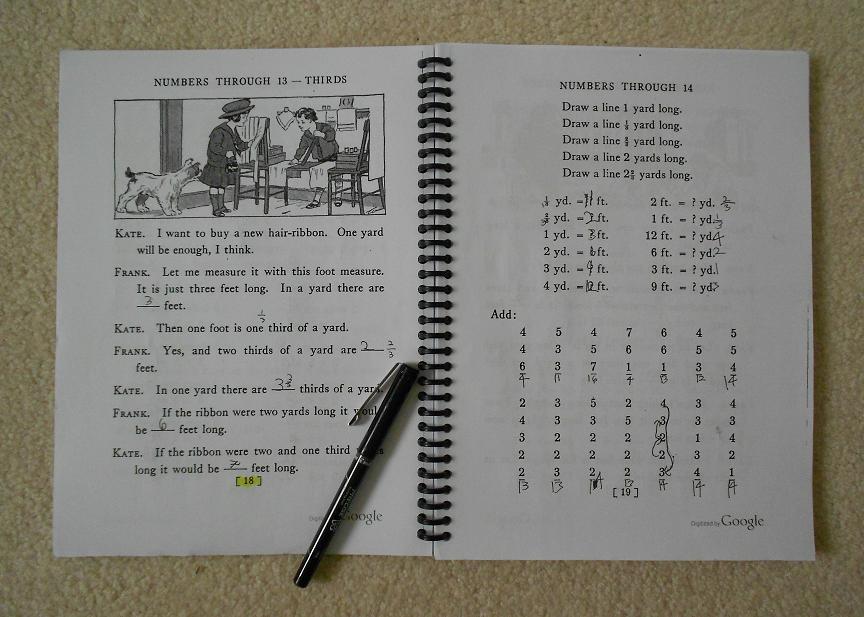 NUMBERS THROUGH 13 — THIRDS
KATE. I want to buy a new hair-ribbon. One yard
will be enough, I think.
FRANK. Let me measure it with this foot measure.
It is just three feet long. In a yard there are
3 feet.
1/3
KATE. Then one foot is one third of a yard.
FRANK. Yes, and two thirds of a yard are 2 2/3
feet.
KATE. In one yard there are 3 3/3 thirds of a yard.
FRANK. If the ribbon were two yards long it would
be 6 feet long.
KATE. If the ribbon were two and one third
long it would be 7 feet long.
[ 18 ]
Digitized by Google
NUMBERS THROUGH 14
Draw a line 1 yard long.
Draw a line 1/3 yard long.
Draw a line 2/3 yard long.
Draw a line 2 yards long.
Draw a line 2 2/3 yards long.
1/3 yd. = 1 ft. 2 ft. = ? yd. 2/3
2/3 yd. = 2 ft. 1 ft. = ? yd. 1/3
1 yd. = 3 ft. 12 ft. = ? yd. 4
2 yd. = 6 ft. 6 ft. = ? yd. 2
3 yd. = 9 ft. 3 ft. = ? yd. 1
4 yd. = 12 ft. 9 ft. = ? yd. 3
Add:
4 5 4 7 6 4 5
4 3 5 6 6 5 5
6 3 7 1 1 3 4
14 11 16 14 13 12 14
2 3 5 2 4 3 4
4 3 3 5 3 3 3
3 2 2 2 2 1 4
2 2 2 2 2 3 2
2 3 2 2 3 4 1
13 13 14 13 14 14 14
[ 19 ]
Digitized by Google